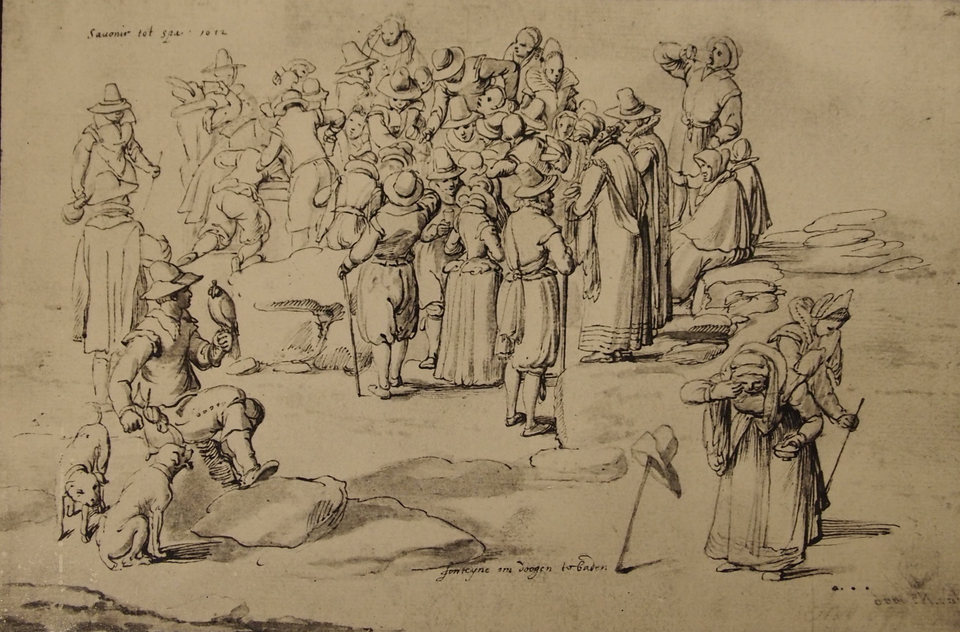 Sauonir tot spa · 1612
fonteyne om doogen te baden